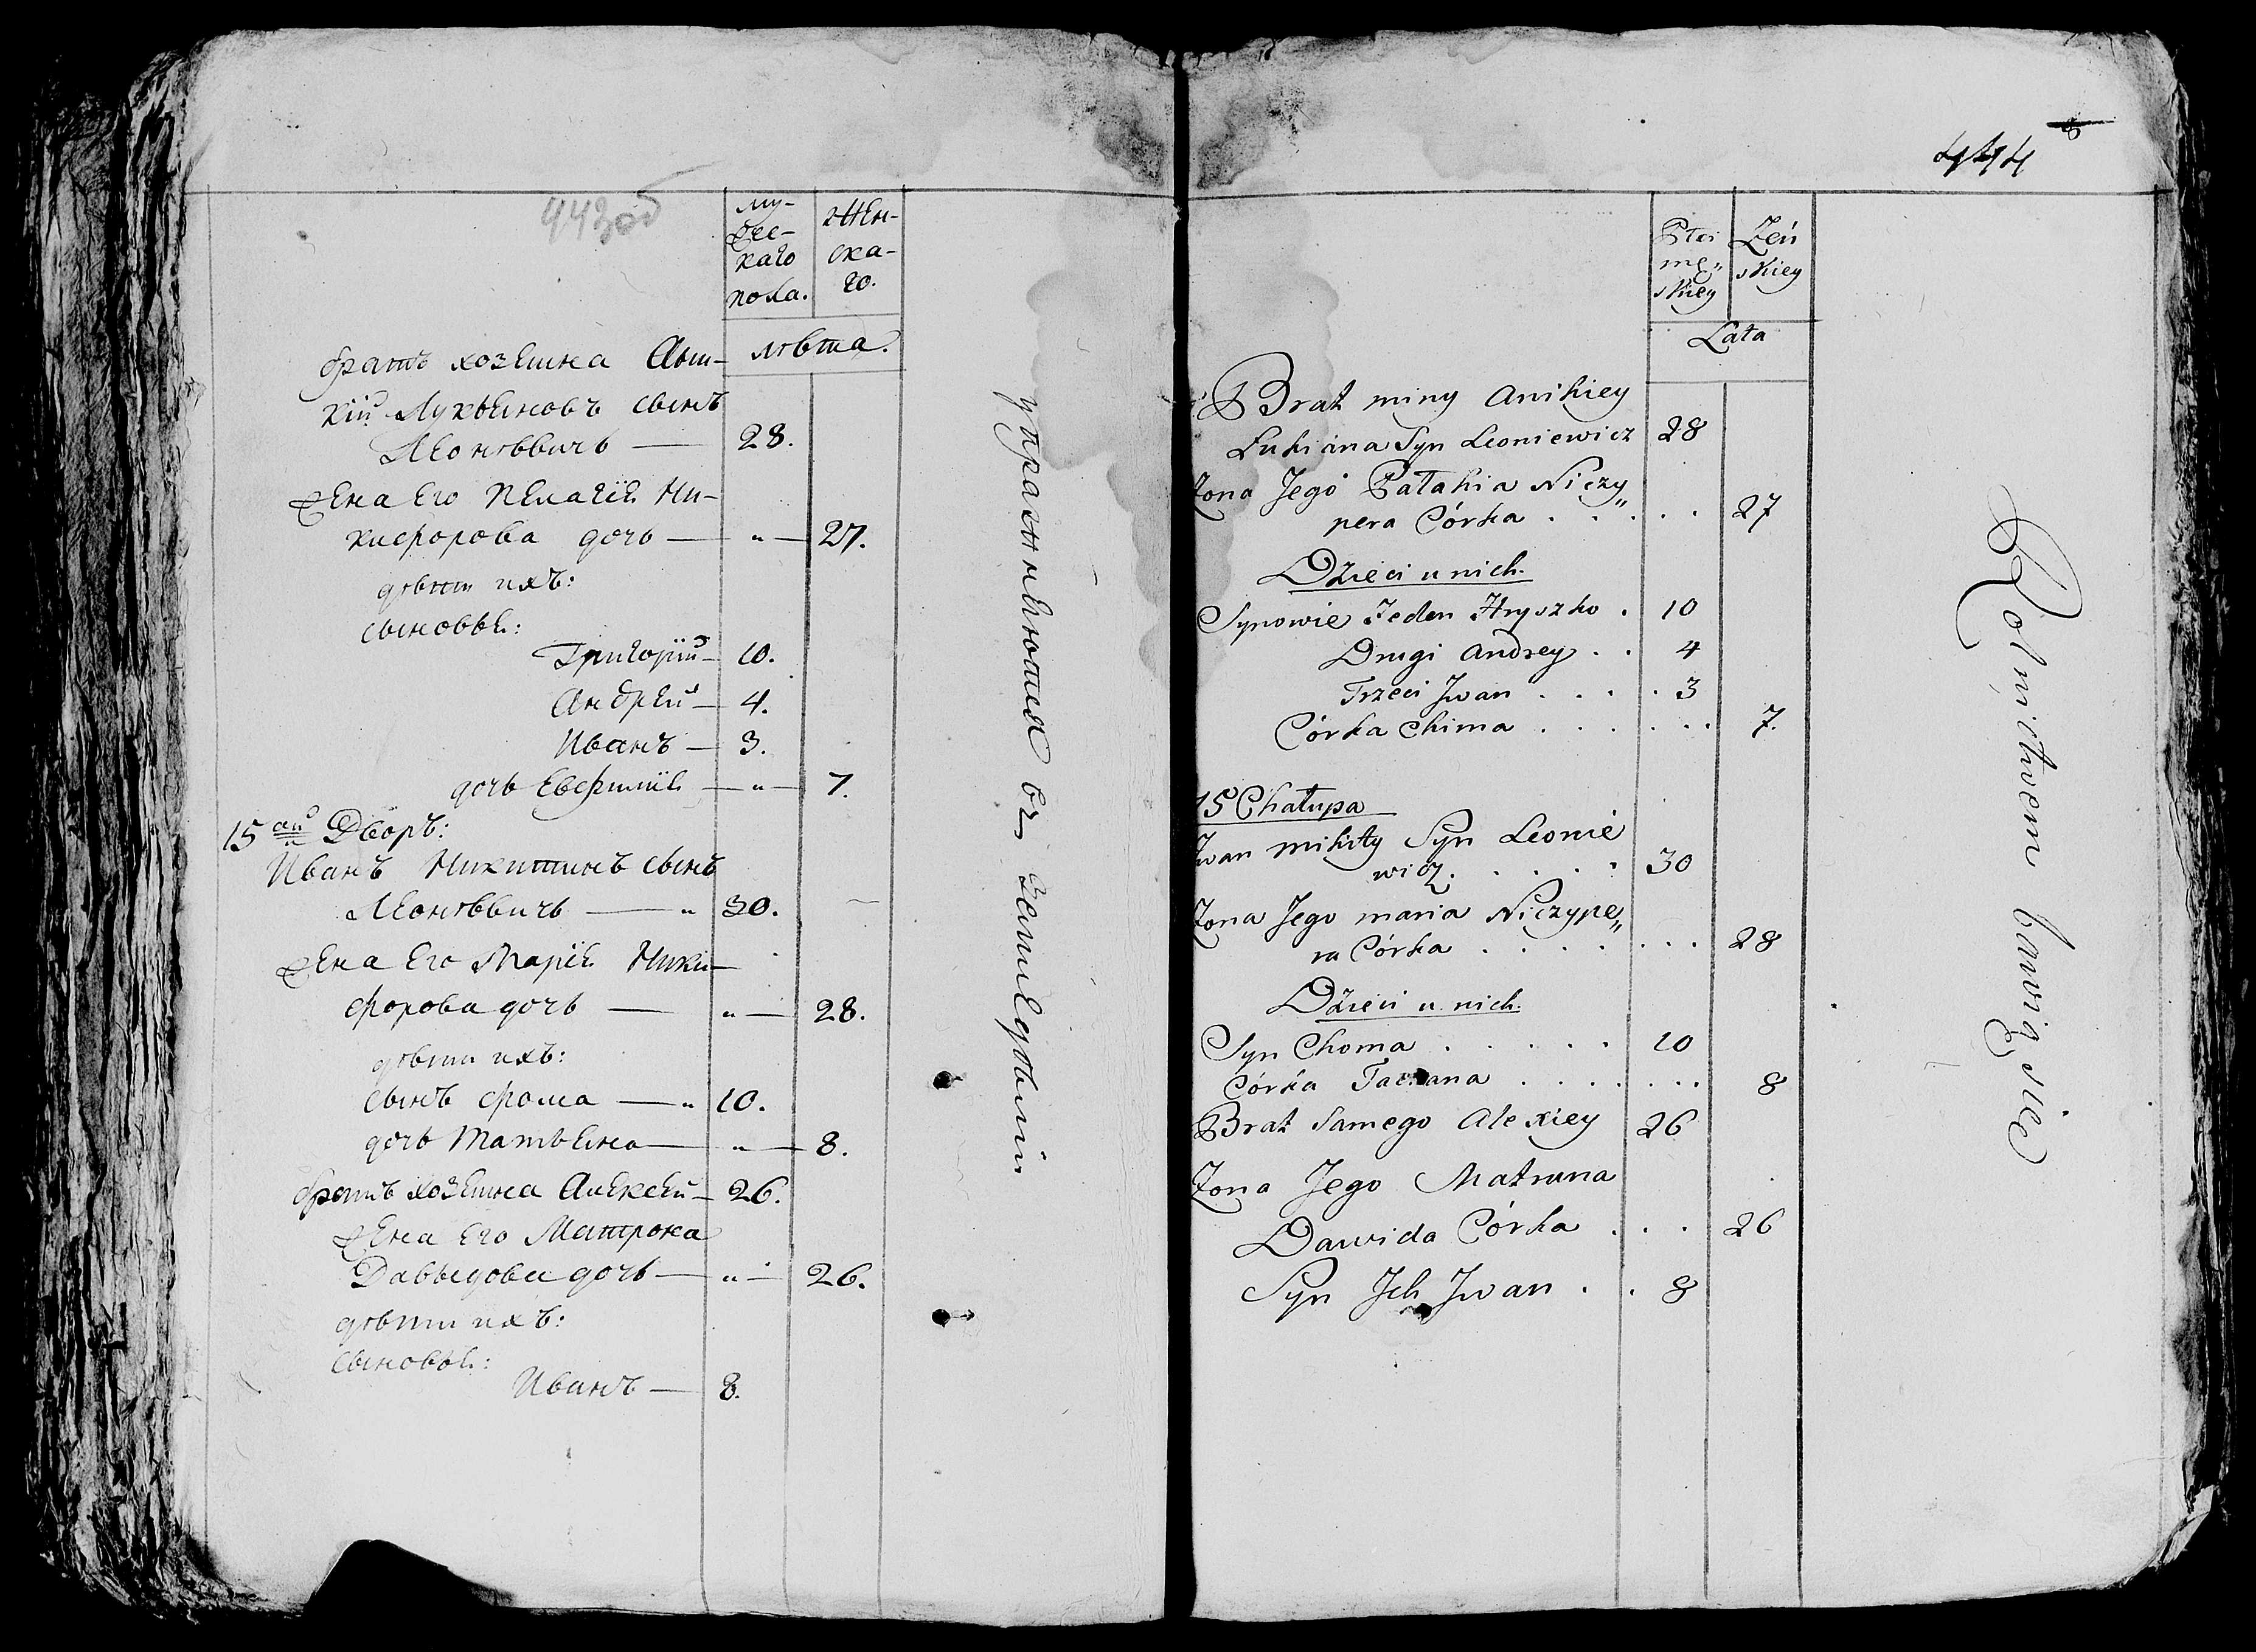 443об
му-
жес-
каго
пола.
жен-
ска-
го.
лѣта.
братъ хозяина Ани-
кій Лукьяновъ сынъ
Леонѣвичъ — 28.
жена его Пелагія Ни-
кифорова дочь — " — 27.
дѣти ихъ:
сыновья:
Григорій — 10.
Андрей — 4.
Иванъ — 3.
дочь Евфимія — " — 7.
15ый Дворъ:
Иванъ Никитинъ сынъ
Леонѣвичъ — " 30.
жена его Марія Ники-
форова дочь — " — 28.
дѣти ихъ:
сынъ Фома — " 10.
дочь Татьяна — " — 8.
братъ хозяина Алексей — 26.
жена его Матрона
Давыдова дочь — " — 26.
дѣти ихъ:
сыновья:
Иванъ — 8.
упражняются въ земледѣліи
8
444
Płci
mę„
skiey
Żeń
skiey
Lata
Brat miny Anikiey
Łukiana Syn Leoniewicz 28
Żona Jego Pałahia Niczy„
pera Córka . . . . . 27
Dzieci u nich.
Synowie Jeden Hryszko . 10
Drugi Andrey . . 4
Trzeci Jwan . . . . 3
Córka Chima . . . . . . 7.
15 Chałupa
Jwan Mikity Syn Leonie
wicz . . . . . 30
Żona Jego Maria Niczype„
ra Córka . . . . . . . 28
Dzieci u nich.
Syn Choma . . . . . 10
Córka Taciana . . . . . . . 8
Brat Samego Alexiey 26
Żona Jego Matruna
Dawida Córka . . . 26
Syn Jch Jwan . . 8
Rolnictwem bawią się